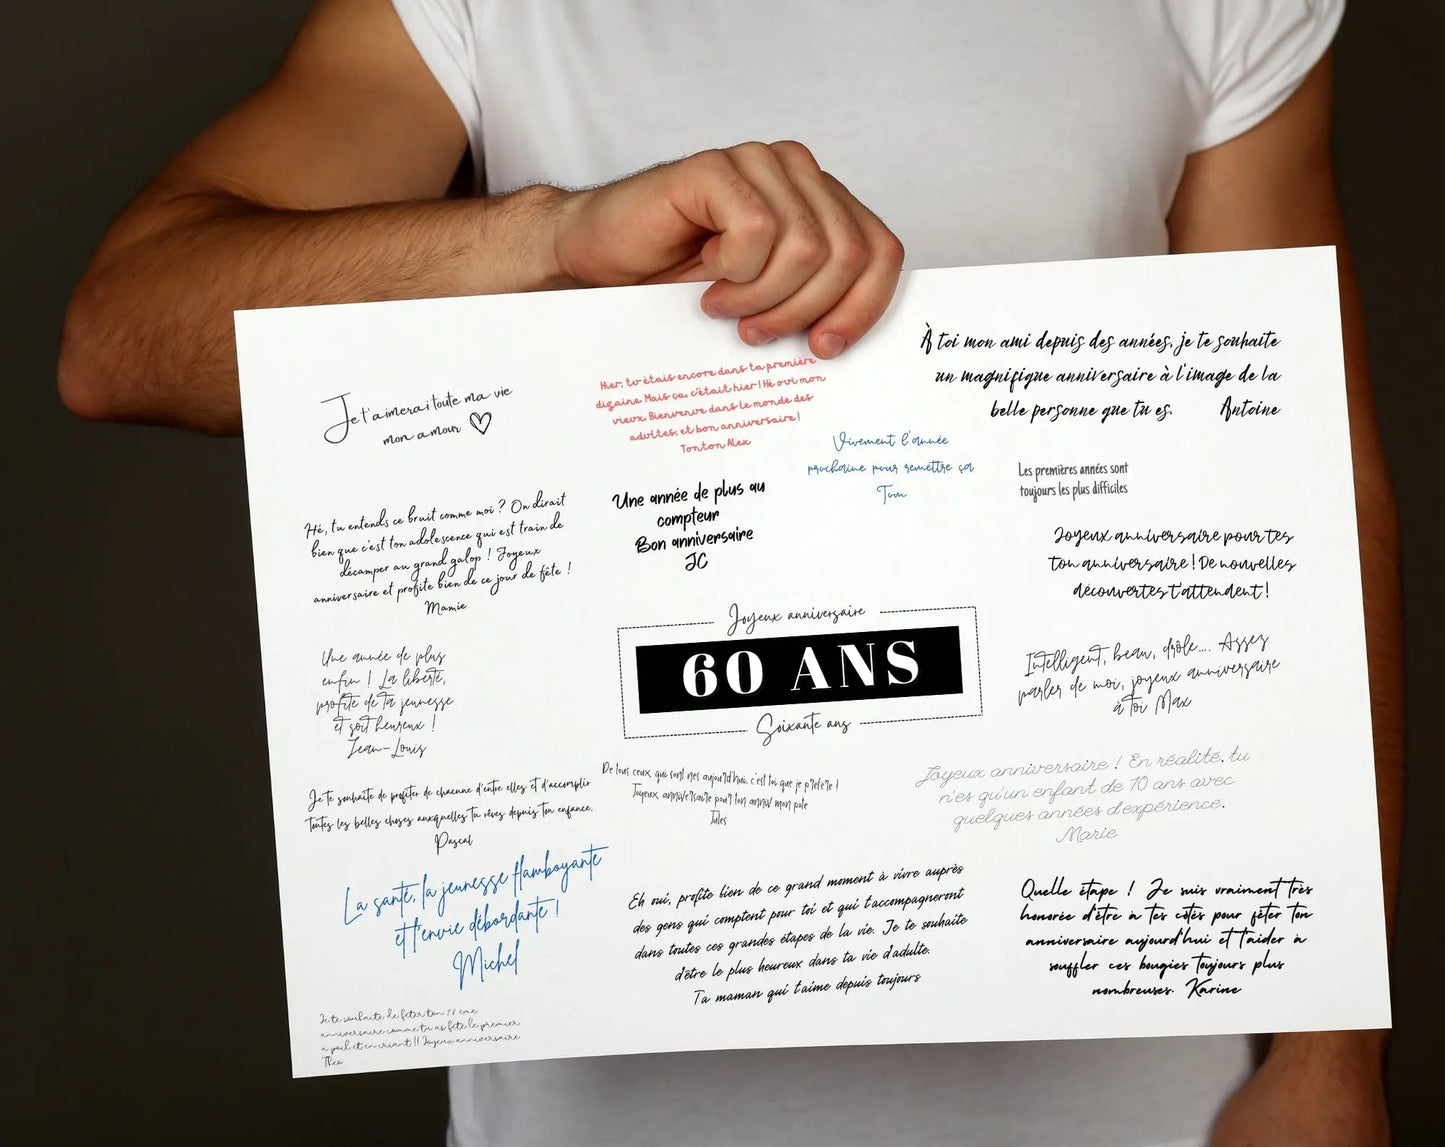 Je t'aimerai toute ma vie
mon amour
Hier, tu étais encore dans ta première
dizaine. Mais ça, c'était hier ! Hé oui mon
vieux. Bienvenue dans le monde des
adultes, et bon anniversaire !
Tonton Alex
À toi mon ami depuis des années, je te souhaite
un magnifique anniversaire à l'image de la
belle personne que tu es. Antoine
Vivement l'année
prochaine pour remettre ça
Tom
Les premières années sont
toujours les plus difficiles
Hé, tu entends ce bruit comme moi ? On dirait
bien que c'est ton adolescence qui est train de
décamper au grand galop ! Joyeux
anniversaire et profite bien de ce jour de fête !
Mamie
Une année de plus au
compteur
Bon anniversaire
JC
Joyeux anniversaire pour tes
ton anniversaire ! De nouvelles
découvertes t'attendent !
Joyeux anniversaire
60 ANS
Soixante ans
Une année de plus
enfin ! La liberté,
profite de ta jeunesse
et soit heureux !
Jean-Louis
Intelligent, beau, drôle.... Assez
parler de moi, joyeux anniversaire
à toi Max
Je te souhaite de profiter de chacune d'entre elles et d'accomplir
toutes les belles choses auxquelles tu rêves depuis ton enfance.
Pascal
De tous ceux qui sont nés aujourd'hui, c'est toi que je préfère !
Joyeux anniversaire pour ton anniv mon pote
Jules
Joyeux anniversaire ! En réalité, tu
n'es qu'un enfant de 10 ans avec
quelques années d'expérience.
Marie
La santé, la jeunesse flamboyante
et l'envie débordante !
Michel
Eh oui, profite bien de ce grand moment à vivre auprès
des gens qui comptent pour toi et qui t'accompagneront
dans toutes ces grandes étapes de la vie. Je te souhaite
d'être le plus heureux dans ta vie d'adulte.
Ta maman qui t'aime depuis toujours
Quelle étape ! Je suis vraiment très
honorée d'être à tes côtés pour fêter ton
anniversaire aujourd'hui et t'aider à
souffler ces bougies toujours plus
nombreuses. Karine
Je te souhaite de fêter ton 11 ème
anniversaire comme tu as fêté le premier
à poil et en criant !! Joyeux anniversaire
Théo